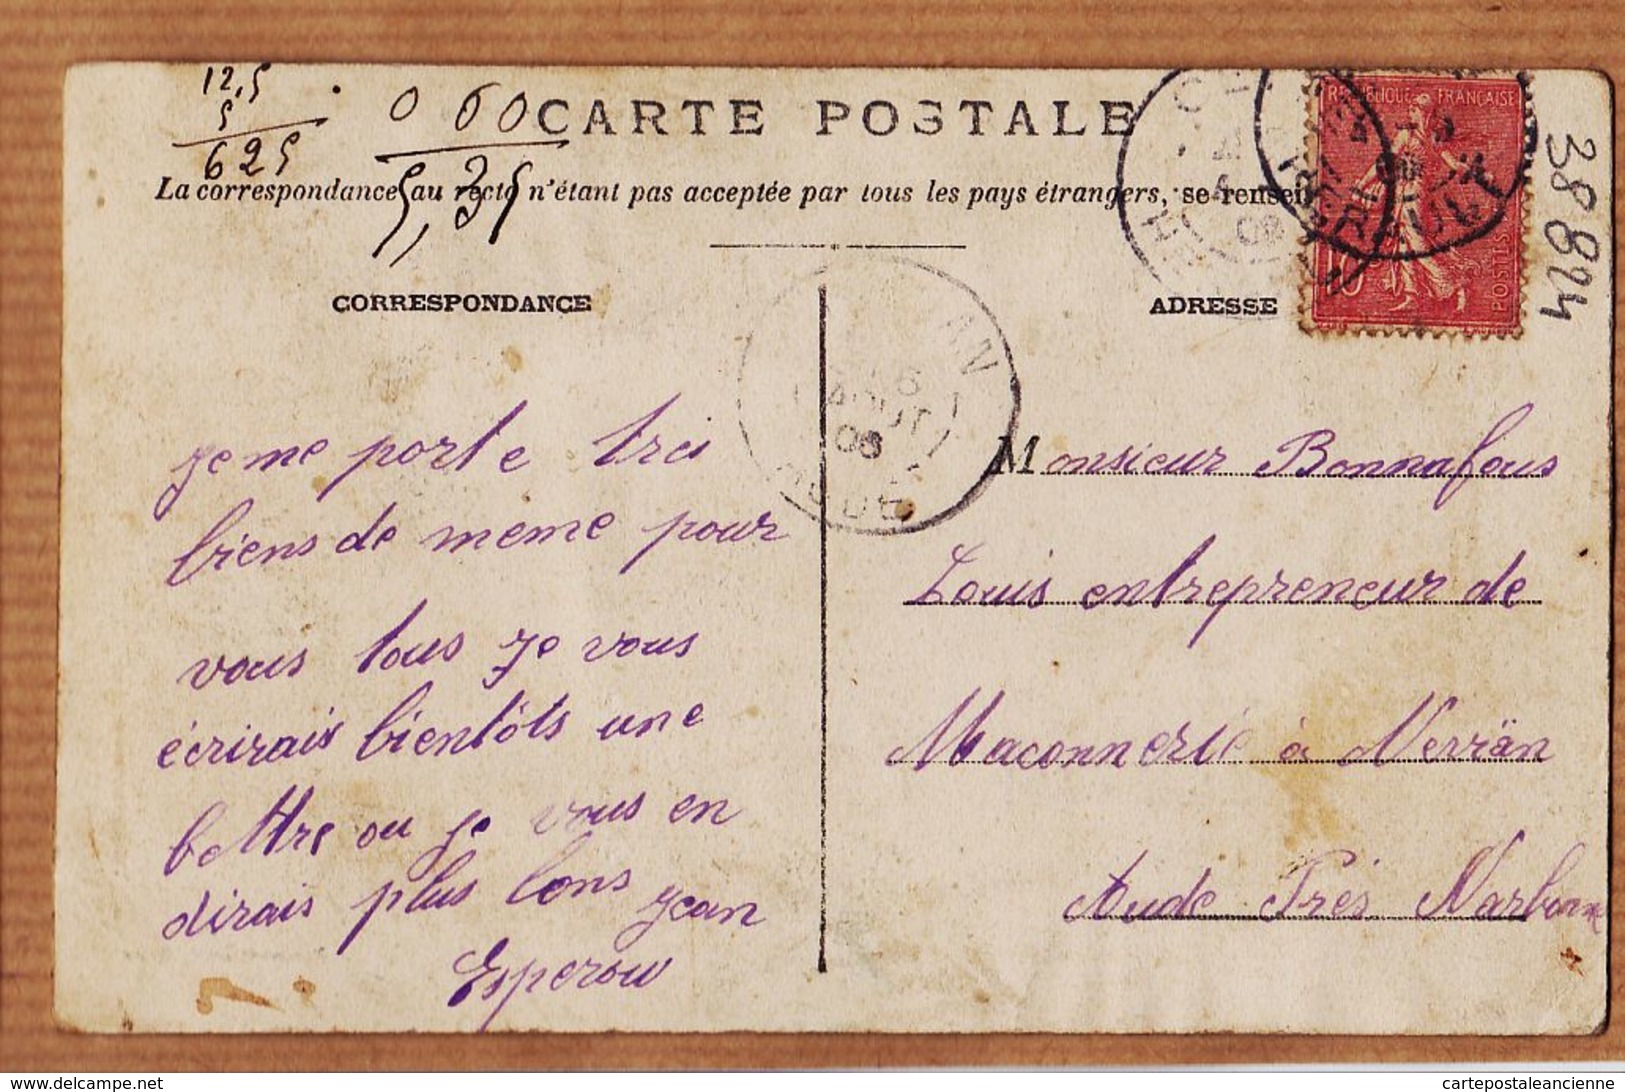 12,5
5
625
0 60
5,35
CARTE POSTALE
La correspondance au recto n'étant pas acceptée par tous les pays étrangers, se rensei
REPUBLIQUE FRANÇAISE
POSTES
38824
CORRESPONDANCE
ADRESSE
AOUT
08
AUDE
jeme porte tres
biens de meme pour
vous tous je vous
écrirais bientôts une
lettre ou je vous en
dirais plus lons jean
Esperou
Monsieur Bonnafous
Louis entrepreneur de
Maconnerie à Nevian
Aude Prés Narbonne
cartepostaleancienne.com
cartepostaleancienne